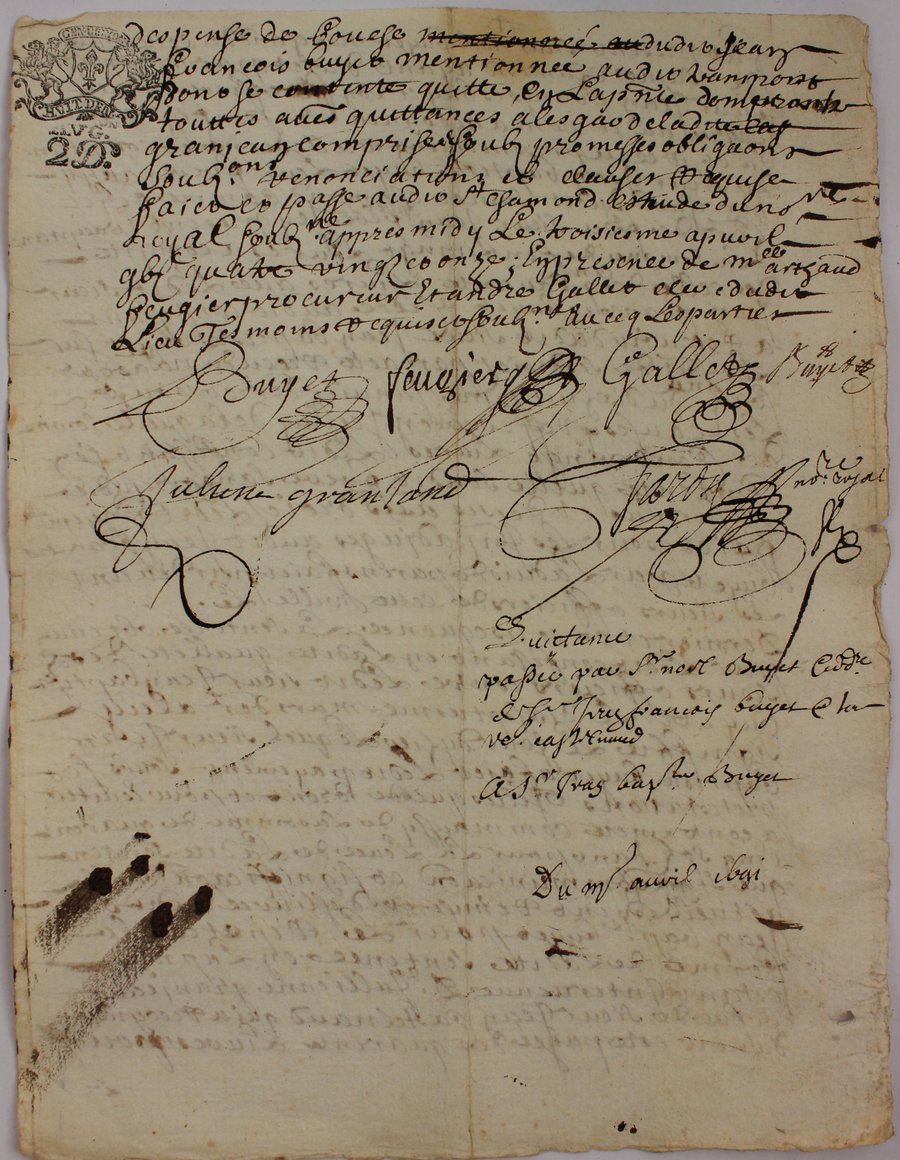 GEN DE LYON
HUIT DEN
AVG.
2 D.
despense de bouche mentionnée au dudit Jean
François buyet mentionnée audit transport
dont se contente quitte, En Lapnte
touttes aues quittances
granjean comprise soubz promesses obligaons
soubz.ons renonciations et clauses requise
faict et passe audit St chamond estude du no.re
Royal soubz.né appres midy Le troisiesme apvril
gbz quatre vingtz et onze ; En presence de m.e artaud
feugier procureur Et andre Gallet clerc dudit
Lieu Tesmoins requis et soubz.nes avecq Les parties
Buyet feugier Gallet Buyet
Juliene granjand
no.re royal
Quictance
passée par Sr. noel Buyet
Jean francois buyet
a Sr Jean bap.te Buyet
Du m.s avvril 1691